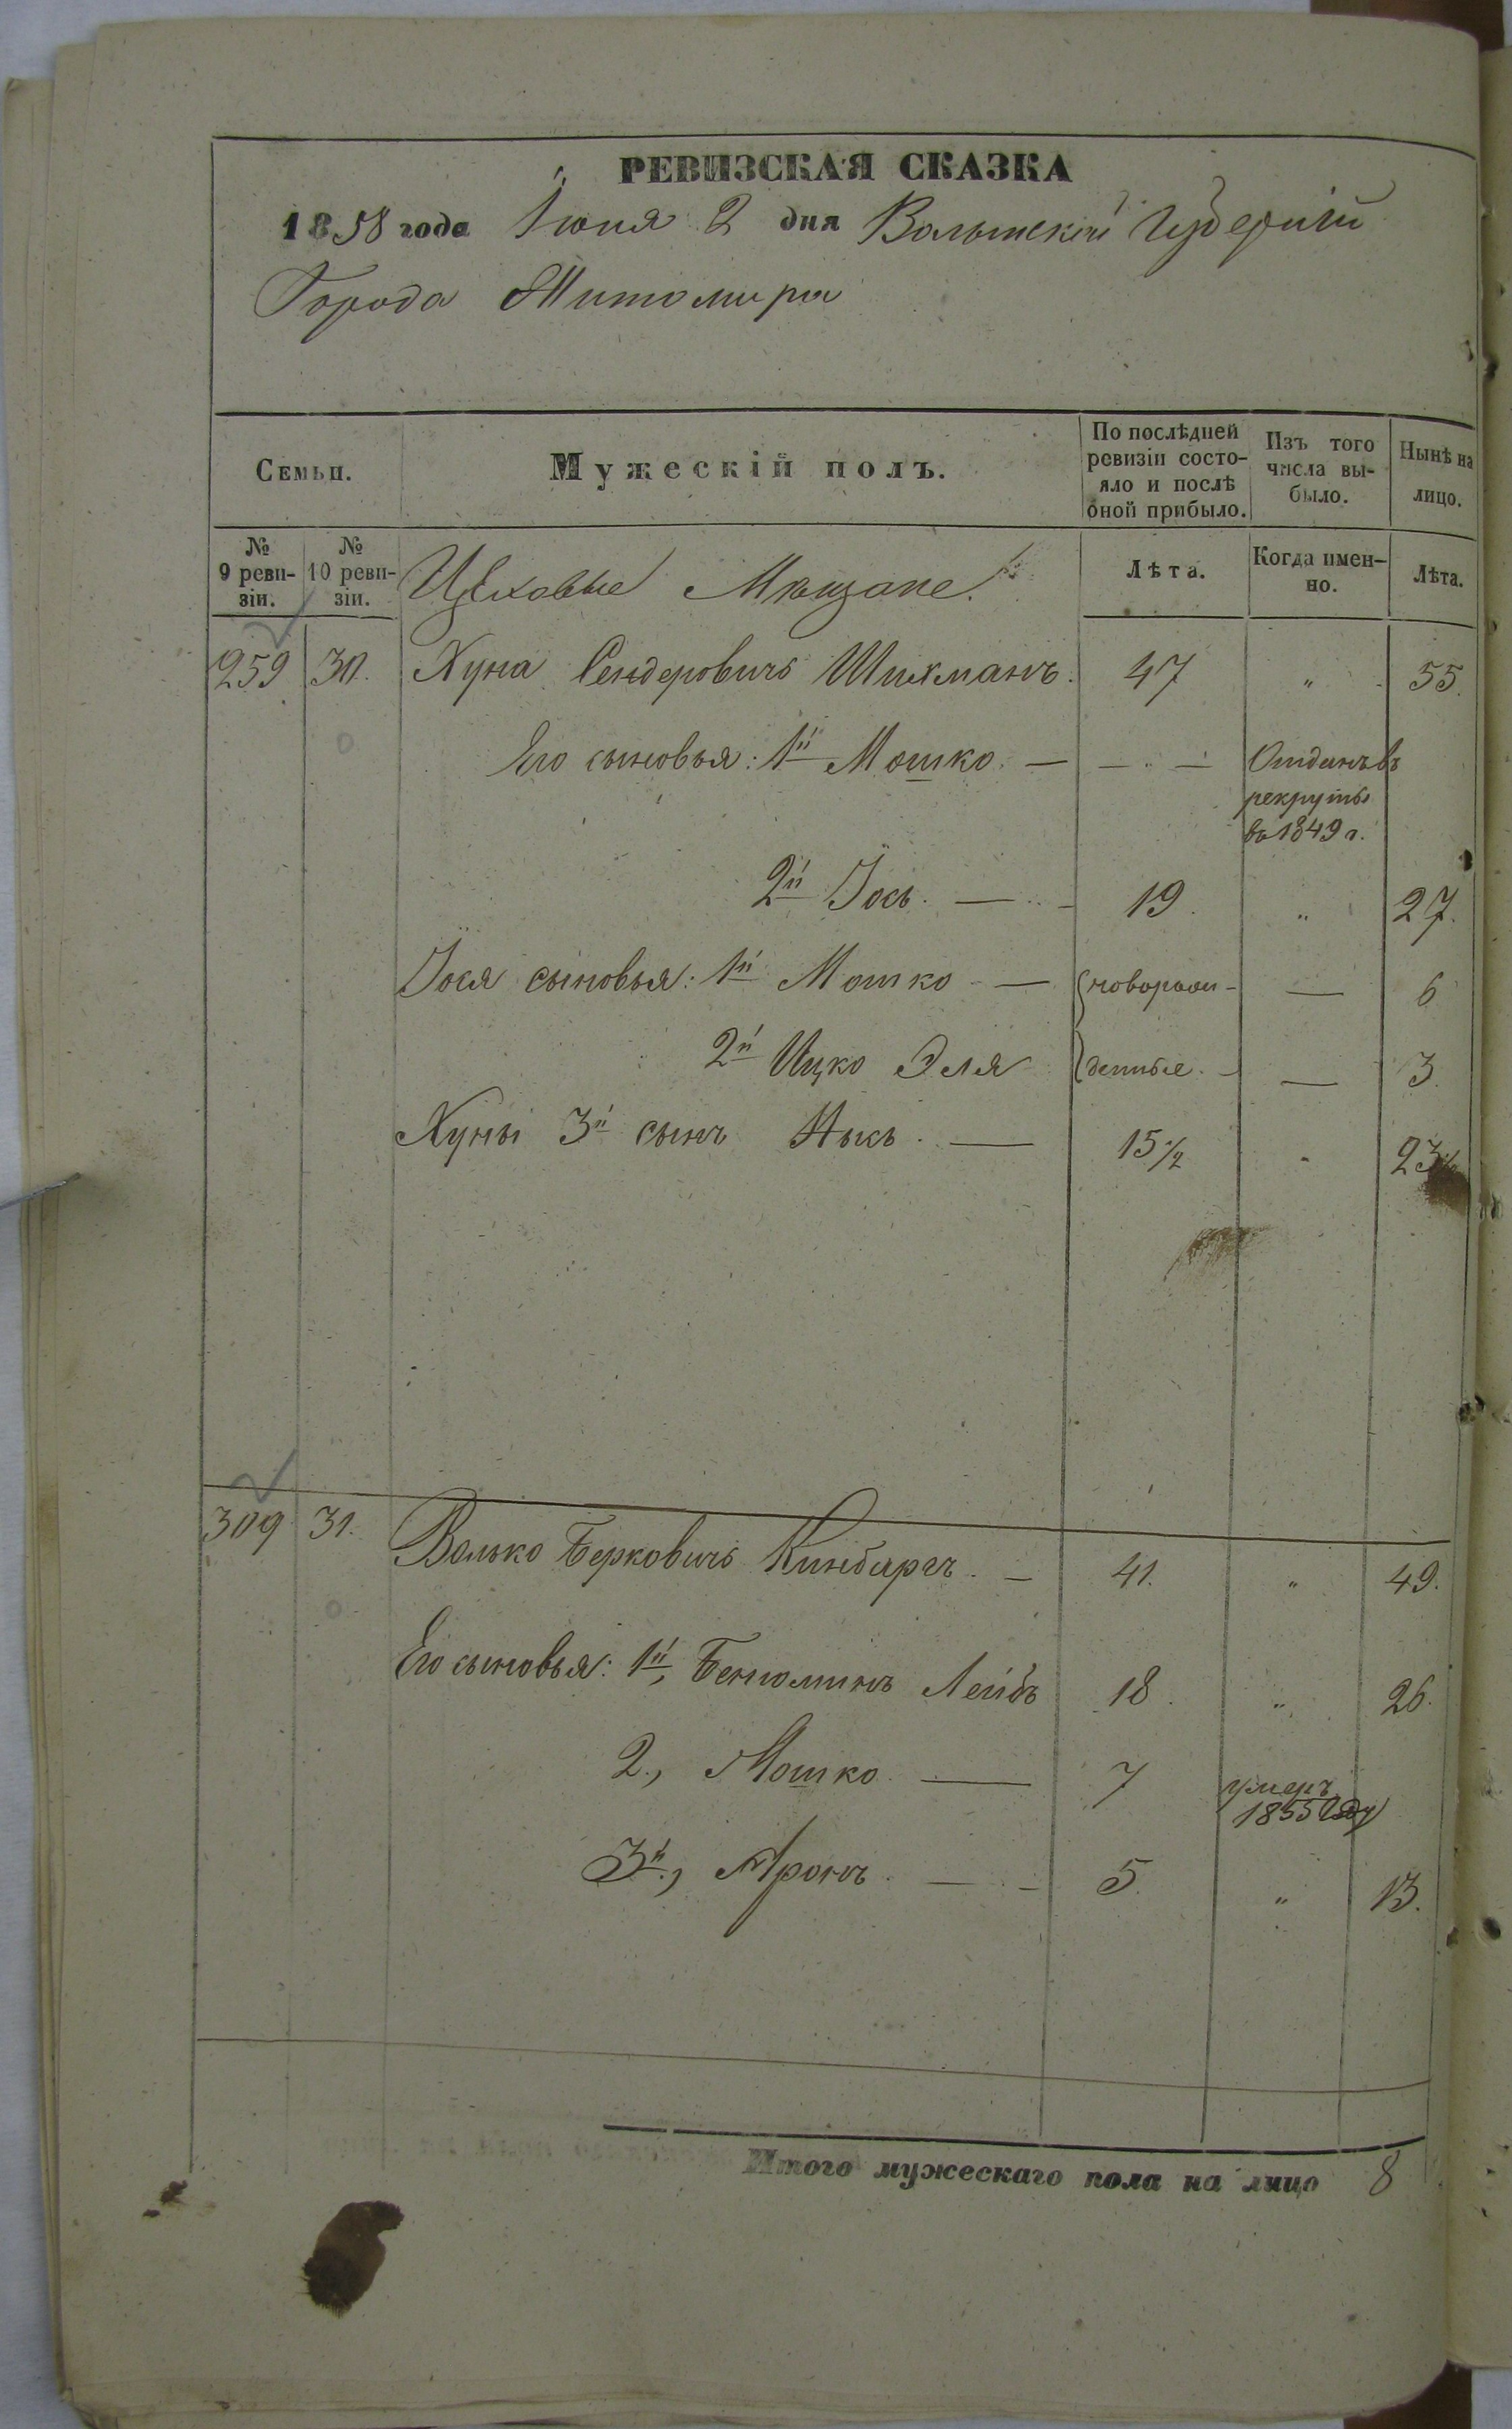 РЕВИЗСКАЯ СКАЗКА
1858 года Іюня 2 дня Волынской Губерніи
Города Житомира
Семьи. Мужескій полъ. По послѣдней ревизіи состояло и послѣ оной прибыло. Изъ того числа выбыло. Нынѣ на лицо.
№ 9 ревизіи. № 10 ревизіи. Цѣховые Мѣщане. Лѣта. Когда именно. Лѣта.
259 30. Хуна Сендеровичъ Шихманъ. 47 " 55.
Его сыновья: 1й Мошко. — — " — Отданъ въ
рекруты
въ 1849 г.
2й Іось. — 19. " 27.
Іося сыновья: 1й Мошко — новорож- — 6
2й Ицко Эля денные. — — 3.
Хуны 3й сынъ — 15½ " 23½
309 31. Волько Берковичъ Кинбаргъ. — 41. " 49.
Его сыновья: 1й, Беніоминъ Лейбъ 18. " 26.
2., Мошко — 7 умеръ
1855 году
3й., Аронъ. — 5. " 13.
Итого мужескаго пола на лицо 8